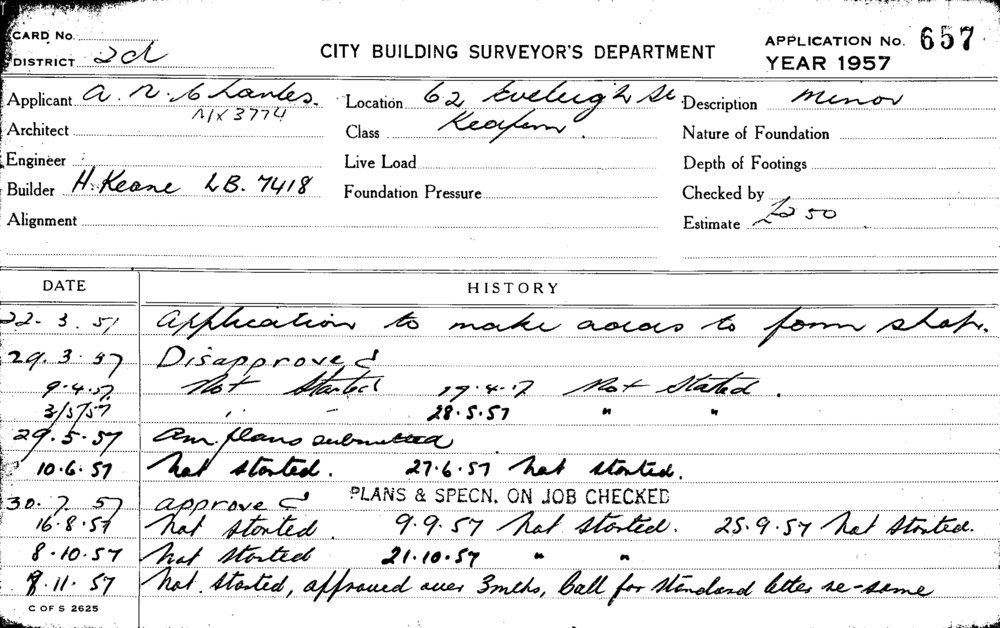 CARD No.
DISTRICT 2d
CITY BUILDING SURVEYOR'S DEPARTMENT
APPLICATION No. 657
YEAR 1957
Applicant A. N. Charles. Location 62 Eveleigh St Description Minor
MX3774 Redfern.
Architect Class Nature of Foundation
Engineer Live Load Depth of Footings
Builder H. Keane LB. 7418 Foundation Pressure Checked by
Alignment Estimate £250
DATE HISTORY
22. 3. 57 Application to make adds to form shop.
29. 3. 57 Disapproved
9.4.57 Not Started 17.4.57 Not Started
3/5/57 " " 28.5.57 " "
29.5.57 Am. plans submitted
10.6.57 Not started. 27.6.57 Not started.
30. 7. 57 approved PLANS & SPECN. ON JOB CHECKED
16.8.57 Not started 9.9.57 Not started. 25.9.57 Not started.
8.10.57 Not started 21.10.57 " "
8.11.57 Not started, approved over 3mths, Call for standard letter re-same
C OF S 2625